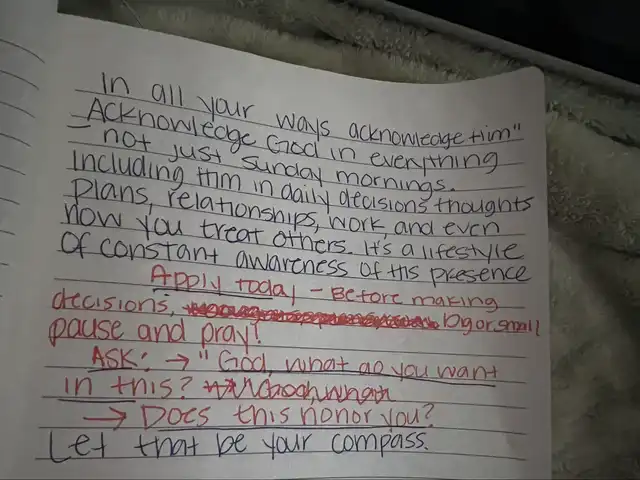 In all your ways acknowledge Him"
Acknowledge God in everything
– not just Sunday mornings.
Including Him in daily decisions thoughts
plans, relationships, work, and even
how you treat others. It's a lifestyle
Of constant awareness of His presence
Apply today – Before making
decisions, big or small
pause and pray!
ASK: → "God, what do you want
in this?
→ Does this honor you?
Let that be your compass.